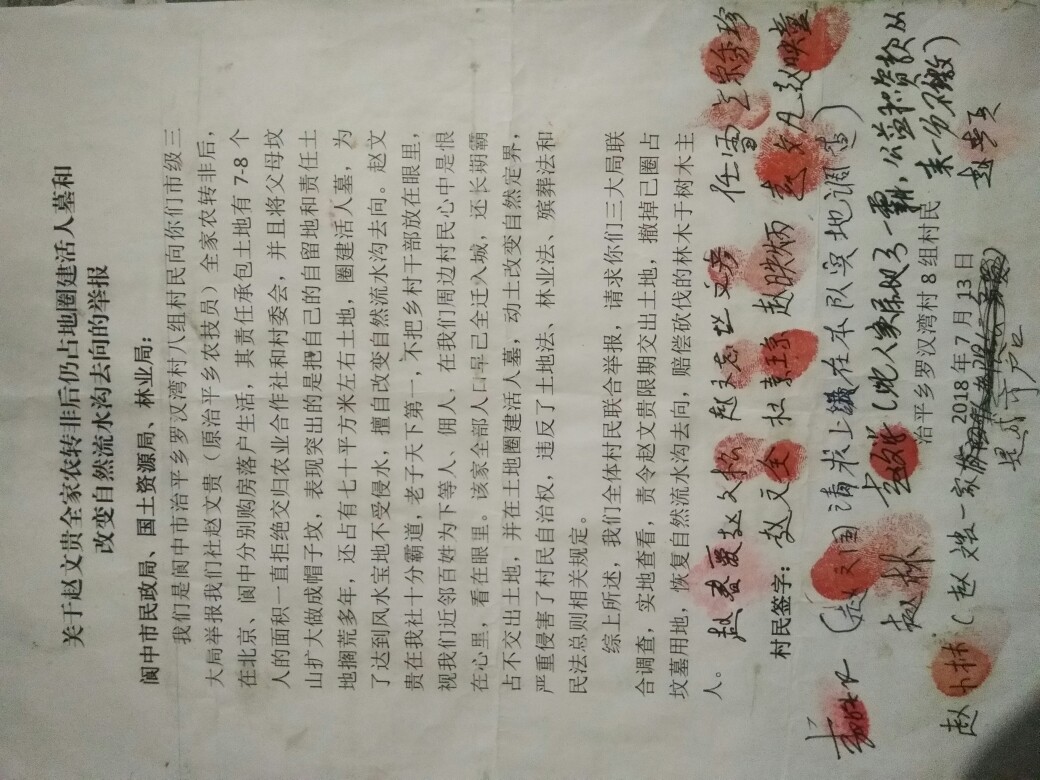 关于赵文贵全家农转非后仍占地圈建活人墓和
改变自然流水沟去向的举报
阆中市民政局、国土资源局、林业局：
我们是阆中市治平乡罗汉湾村八组村民向你们市级三
大局举报我们社赵文贵（原治平乡农技员）全家农转非后，
在北京、阆中分别购房落户生活，其责任承包土地有 7-8 个
人的面积一直拒绝交归农业合作社和村委会，并且将父母坟
山扩大做成帽子坟，表现突出的是把自己的自留地和责任土
地搁荒多年，还占有七十平方米左右土地，圈建活人墓，为
了达到风水宝地不受侵水，擅自改变自然流水沟去向。赵文
贵在我社十分霸道，老子天下第一，不把乡村干部放在眼里，
视我们近邻百姓为下等人、佣人，在我们周边村民心中是恨
在心里，看在眼里。该家全部人口早己全迁入城，还长期霸
占不交出土地，并在土地圈建活人墓，动土改变自然定界，
严重侵害了村民自治权，违反了土地法、林业法、殡葬法和
民法总则相关规定。
综上所述，我们全体村民联合举报，请求你们三大局联
合调查，实地查看，责令赵文贵限期交出土地，撤掉己圈占
坟墓用地，恢复自然流水沟去向，赔偿砍伐的林木于树木主
人。
赵文松 赵 任雪
村民签字： 赵文全 赵映炳 赵文凡 赵映董
（赵文国请求上级在本队实地调查）
赵林 （此人实际现了一霸，公益积资款从
来一分不缴）
治平乡罗汉湾村 8 组村民
2018 年 7 月 13 日
赵小林（赵 一家
是